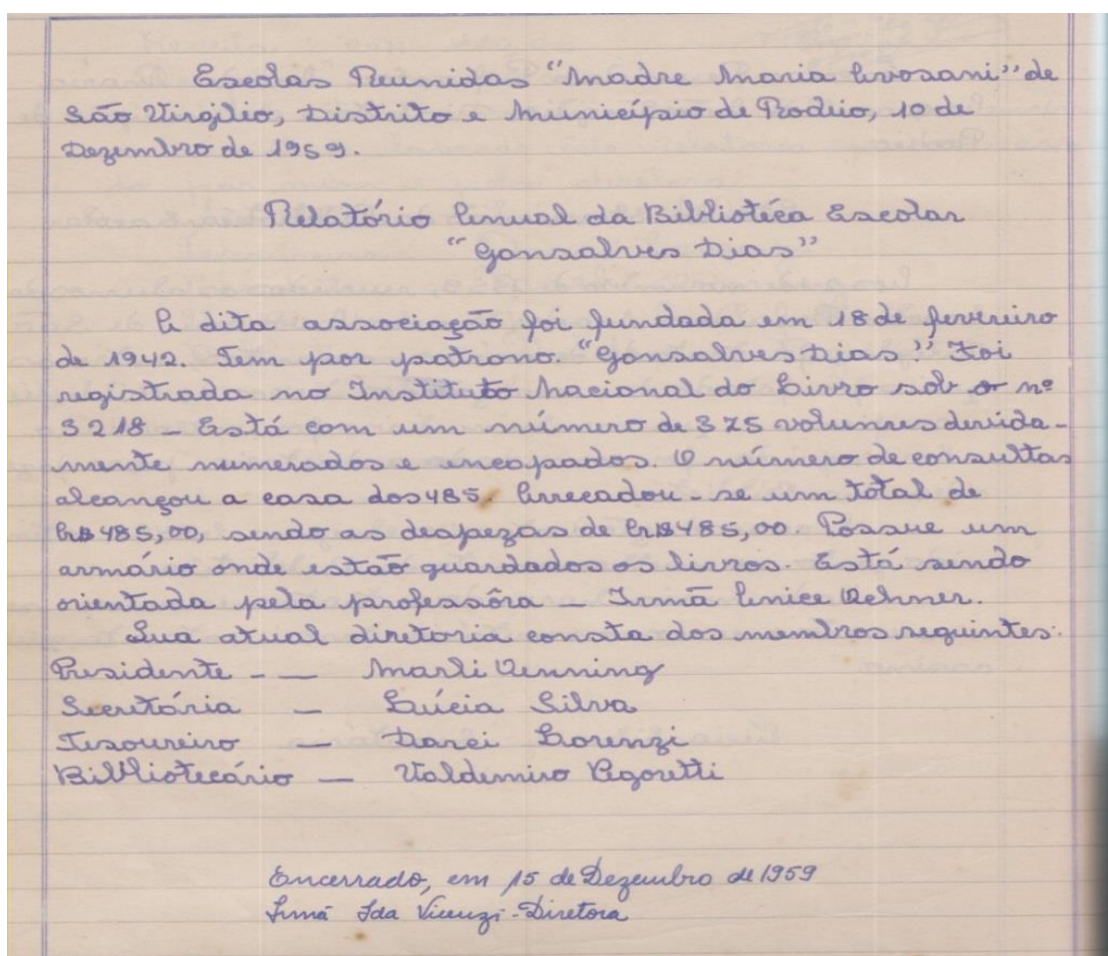 Escolas Reunidas "Madre Maria Avosani" de
São Virgilio, Distrito e Município de Rodeio, 10 de
Dezembro de 1959.
Relatório Anual da Bibliotéca Escolar
"Gonsalves Dias"
A dita associação foi fundada em 18 de fevereiro
de 1942. Tem por patrono. "Gonsalves Dias" Foi
registrada no Instituto Nacional do Livro sob o nº
3218 - Está com um número de 375 volumes devida-
mente numerados e encapados. O número de consultas
alcançou a casa dos 485. Arrecadou-se um total de
Cr$ 485,00, sendo as despezas de Cr$ 485,00. Possue um
armário onde estão guardados os livros. Está sendo
orientada pela professôra - Irmã Anice
Sua atual diretoria consta dos membros seguintes:
Presidente - - Marli
Secretária - Lúcia Silva
Tesoureiro - Darci Lorenzi
Bibliotecário - Valdemiro Pegoretti
Encerrado, em 15 de Dezembro de 1959
Irmã Ida Vicenzi - Diretora